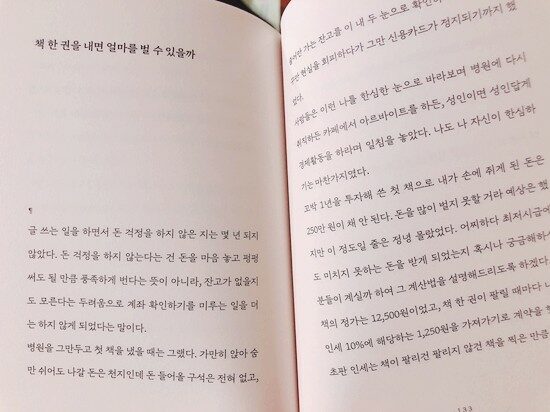 책 한 권을 내면 얼마를 벌 수 있을까
¶
글 쓰는 일을 하면서 돈 걱정을 하지 않은 지는 몇 년 되지
않았다. 돈 걱정을 하지 않는다는 건 돈을 마음 놓고 펑펑
써도 될 만큼 풍족하게 번다는 뜻이 아니라, 잔고가 없을지
도 모른다는 두려움으로 계좌 확인하기를 미루는 일을 더
는 하지 않게 되었다는 말이다.
병원을 그만두고 첫 책을 냈을 때는 그랬다. 가만히 앉아 숨
만 쉬어도 나갈 돈은 천지인데 돈 들어올 구석은 전혀 없고,
줄어만 가는 잔고를 이 내 두 눈으로 확인
그만 현실을 회피하다가 그만 신용카드가 정지되기까지 했
었다.
사람들은 이런 나를 한심한 눈으로 바라보며 병원에 다시
취직하든 카페에서 아르바이트를 하든, 성인이면 성인답게
경제활동을 하라며 일침을 놓았다. 나도 나 자신이 한심하
기는 마찬가지였다.
꼬박 1년을 투자해 쓴 첫 책으로 내가 손에 쥐게 된 돈은
250만 원이 채 안 된다. 돈을 많이 벌지 못할 거라 예상은 했
지만 이 정도일 줄은 정녕 몰랐었다. 어찌하다 최저시급에
도 미치지 못하는 돈을 받게 되었는지 혹시나 궁금해하
분들이 계실까 하여 그 계산법을 설명해드리도록 하겠다.
책의 정가는 12,500원이었고, 책 한 권이 팔릴 때마다 나
인세 10%에 해당하는 1,250원을 가져가기로 계약을
초판 인세는 책이 팔리건 팔리지 않건 책을 찍은 만큼
133